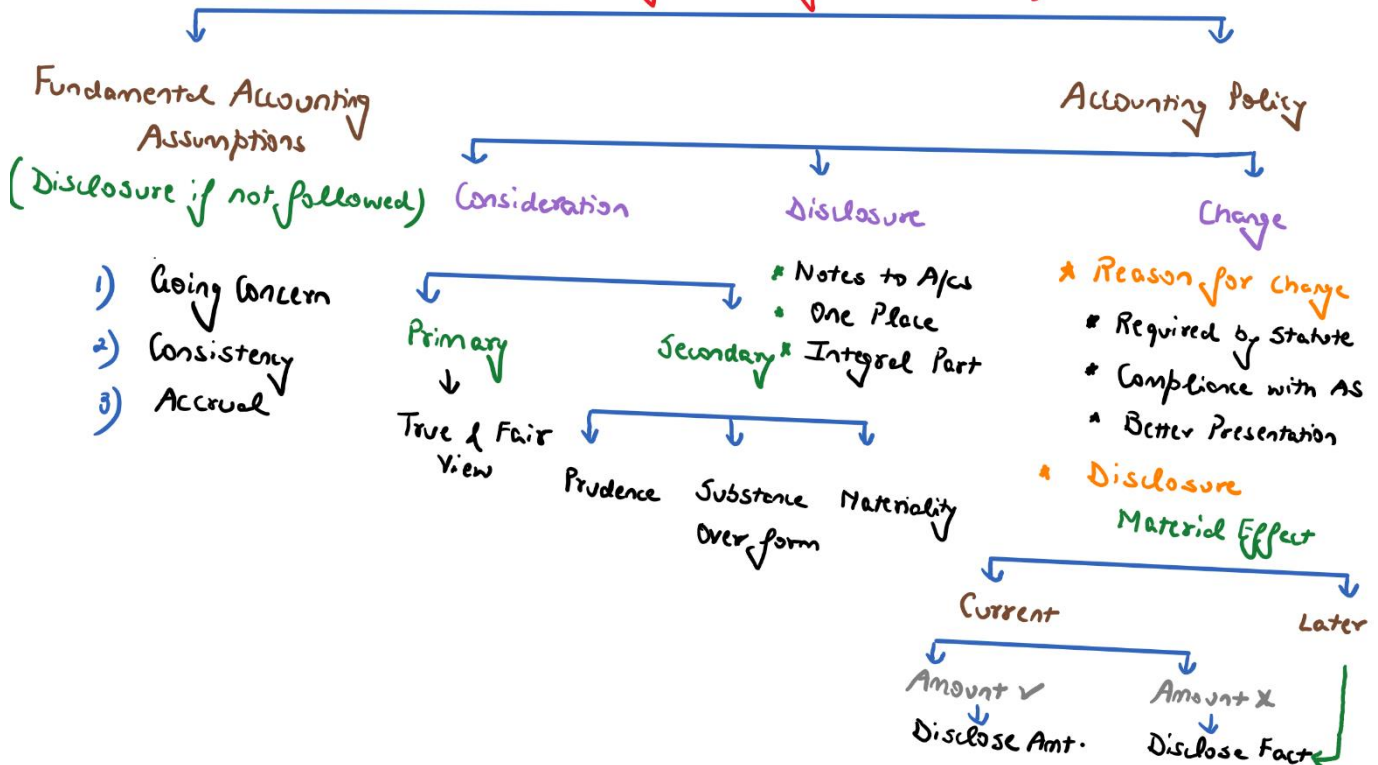 Fundamental Accounting
Assumptions
(Disclosure if not followed)
1) Going Concern
2) Consistency
3) Accrual
Accounting Policy
Consideration
Primary
True & Fair
View
Secondary
Prudence
Substance
Over form
Materiality
Disclosure
* Notes to A/cs
* One Place
* Integral Part
Change
* Reason for Change
* Required by Statute
* Compliance with AS
* Better Presentation
* Disclosure
Material Effect
Current
Amount ✓
Disclose Amt.
Amount ✗
Disclose Fact
Later